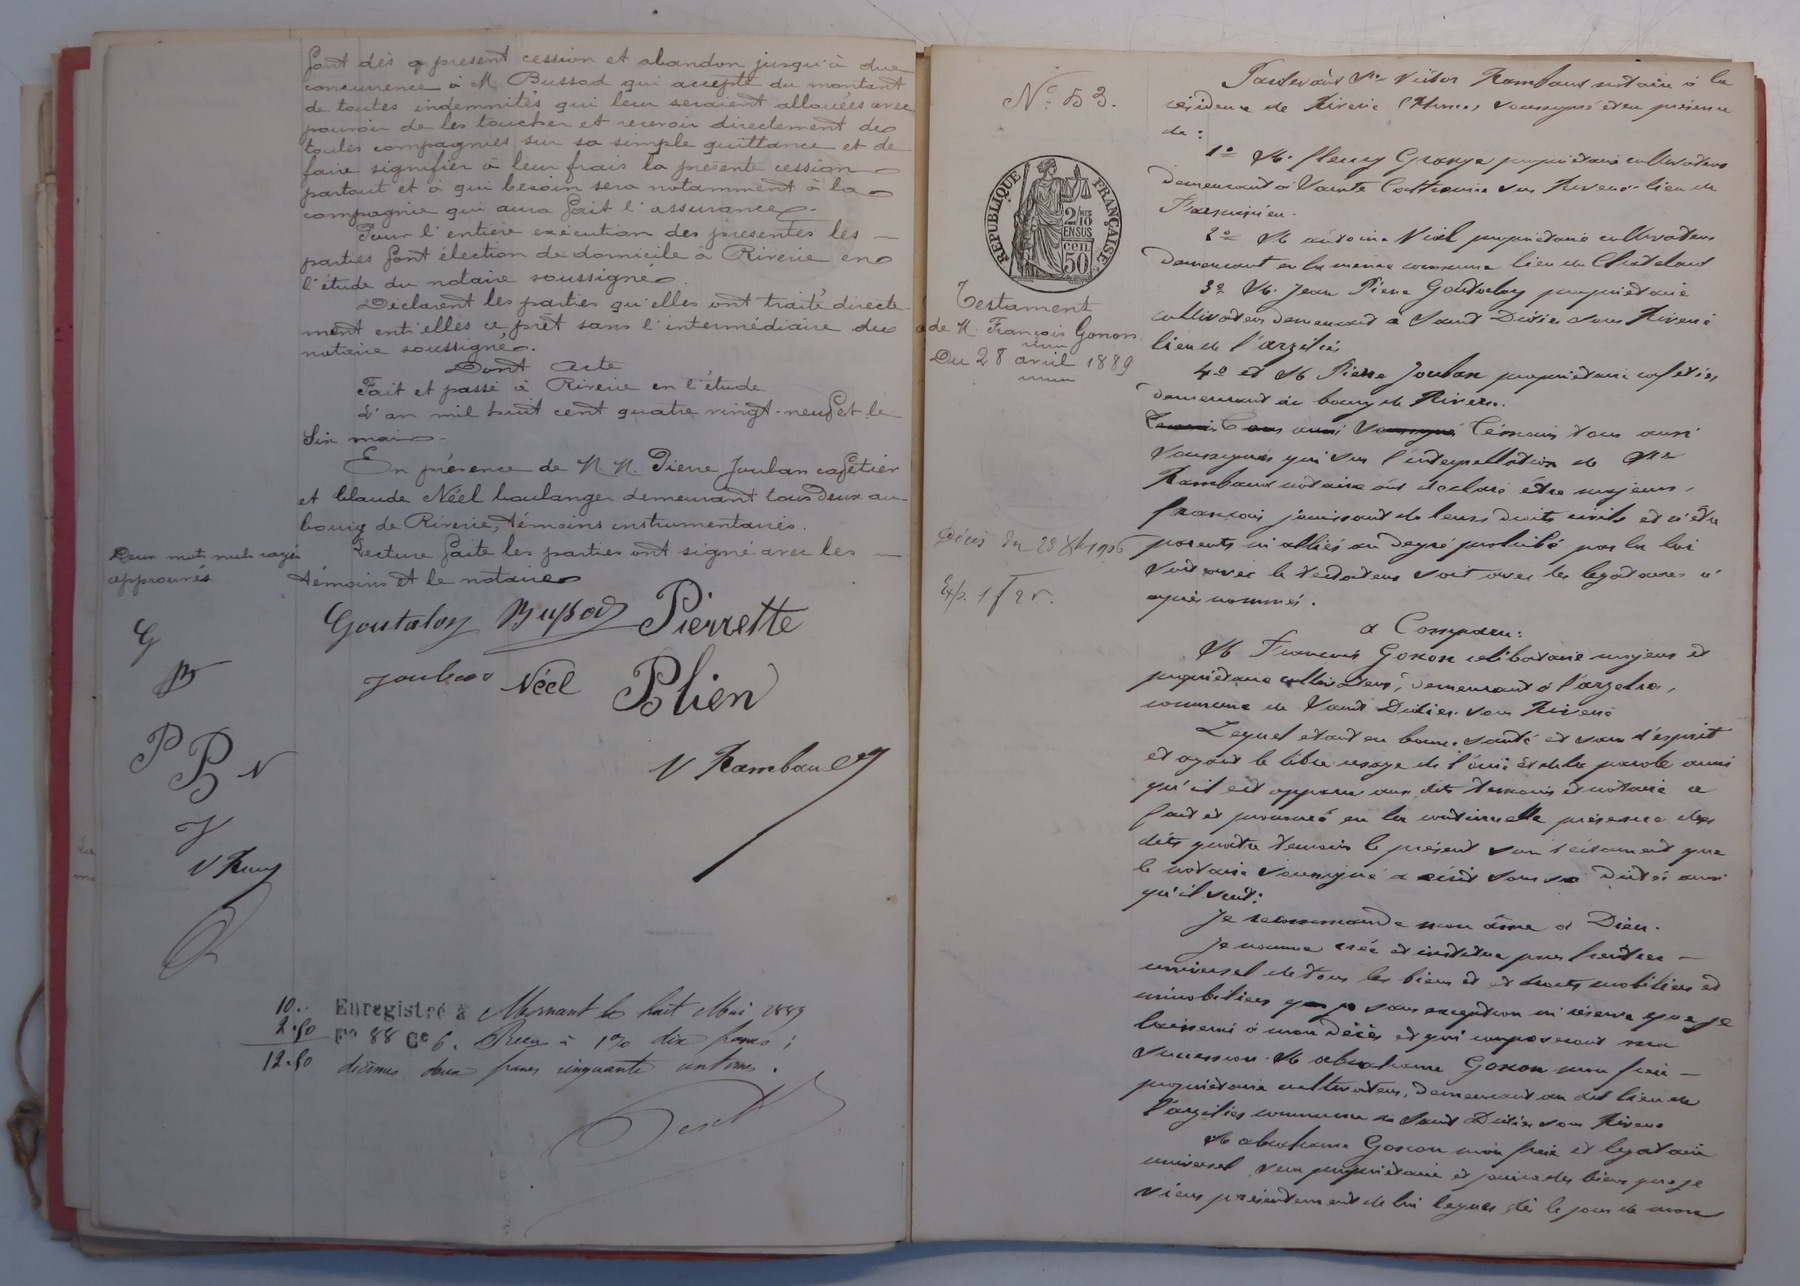 font dès à present cession et abandon jusqu'à due
concurence à M. Bussod qui accepte du montant
de toutes indemnités qui leur seraient allouées avec
pouvoir de les toucher et recevoir directement de
toutes compagnies sur sa simple quittance et de
faire signifier à leur frais la présente cession
partout et à qui besoin sera notamment à la
compagnie qui aura fait l'assurance.
Pour l'entière exécution des présentes les —
parties font élection de domicile à Riverie en
l'étude du notaire soussigné.
Déclarent les parties qu'elles ont traité directe
ment entr'elles ce prêt sans l'intermédiaire du
notaire soussigné.
Dont Acte
Fait et passé à Riverie en l'étude
L'an mil huit cent quatre vingt-neuf et le
Six mai
En présence de M M. Pierre Joulan cafetier
et Claude Néel boulanger demeurant tous deux au
bourg de Riverie, témoins instrumentaires.
Lecture faite les parties ont signé avec les —
témoins et le notaire
Deux mots nuls rayés
approuvés
Goutalon Bussod Pierrette
Néel Blien
V Rambaud
G
B
P B N
J
V Ramb
10..
2.50
12.50
Enregistré à Mornant le huit Mai 1889
Fo 88 Ce 6. Reçu à 1% dix francs;
décimes deux francs cinquante centimes.
No 53.
REPUBLIQUE FRANÇAISE
2/10 EN SUS
50 cen
Testament
de M. François Gonon
Du 28 avril 1889
Décès du 28
Exp.
Pardevant Me Victor Rambaud notaire à la
résidence de Riverie (Rhône) soussigné et en présence
de:
1o M. fleury Grange propriétaire cultivateur
demeurant à Sainte Catherine sur Riverie lieu de
2o M. antoine Viel propriétaire cultivateur
demeurant en la même commune lieu de Chatelard
3o M. Jean Pierre Goutalon propriétaire
cultivateur demeurant à Saint Didier sous Riverie
lieu de l'argelier
4o et M. Pierre Joulan propriétaire cafetier
demeurant au bourg de Riverie.
témoins tous aussi
soussignés qui sur l'interpellation de Me
Rambaud notaire ont déclaré être majeurs,
français jouissant de leurs droits civils et n'être
parents ni alliés au degré prohibé par la loi
soit avec le testateur soit avec les légataires ci
après nommés.
a Comparu:
M. François Gonon célibataire majeur et
propriétaire cultivateur, demeurant à l'argelier,
commune de Saint Didier sous Riverie
Lequel étant en bonne santé et sain d'esprit
et ayant le libre usage de l'ouïe et de la parole ainsi
qu'il est apparu aux dits témoins et notaire a
fait et prononcé en la continuelle présence des
dits quatre témoins le présent son testament que
le notaire soussigné a écrit sous sa dictée ainsi
qu'il suit:
Je recommande mon âme à Dieu.
Je nomme crée et institue pour héritier —
universel de tous les biens et et droits mobiliers et
immobiliers sans exception ni réserve que je
laisserai à mon décès et qui composeront ma
succession. M abrahame Gonon mon frère —
propriétaire cultivateur, demeurant au dit lieu de
l'argelier commune de Saint Didier sous Riverie
M abrahame Gonon mon frère et légataire
universel sera propriétaire et jouira des biens que je
viens présentement de lui léguer dès le jour de mon